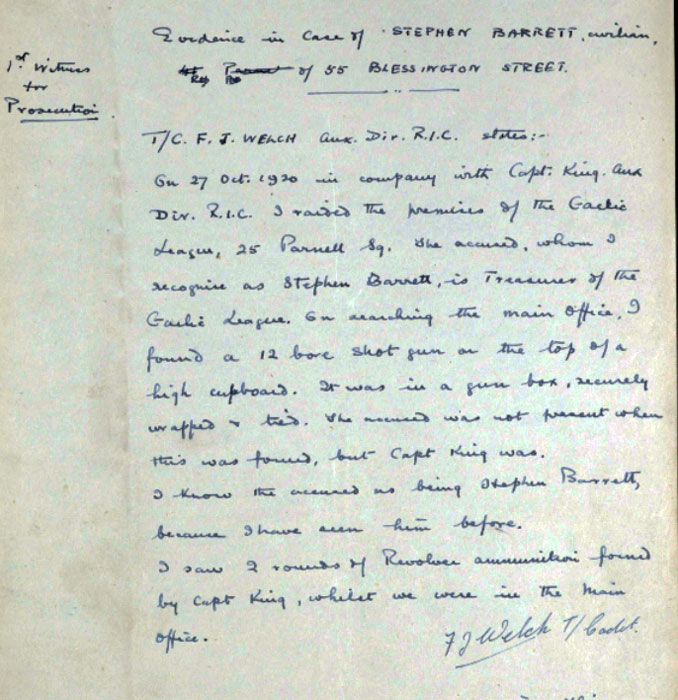 Evidence in Case of STEPHEN BARRETT, civilian,
of 55 BLESSINGTON STREET.
1st Witness
for
Prosecution
T/C. F. J. WELCH Aux. Div. R.I.C. states:-
On 27 Oct. 1920 in company with Capt. King. Aux
Div. R.I.C. I raided the premises of the Gaelic
League, 25 Parnell Sq. The accused, whom I
recognise as Stephen Barrett, is Treasurer of the
Gaelic League. On searching the main office, I
found a 12 bore shot gun on the top of a
high cupboard. It was in a gun box, securely
wrapped & tied. The accused was not present when
this was found, but Capt King was.
I know the accused as being Stephen Barrett,
because I have seen him before.
I saw 2 rounds of Revolver ammunition found
by Capt King, whilst we were in the Main
Office.
F J Welch T/Cadet.